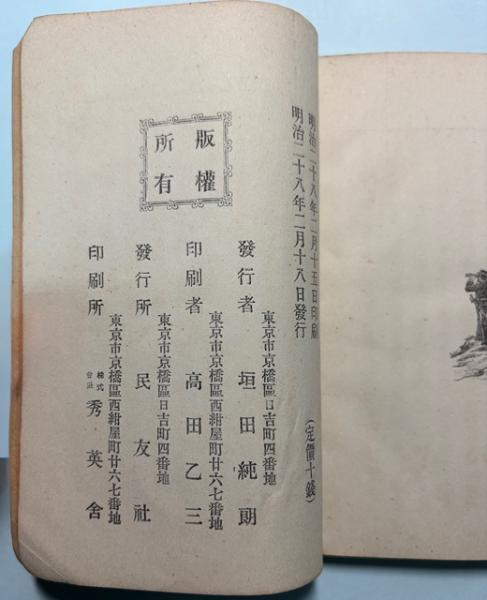 明治二十八年二月十五日印刷
明治二十八年二月十八日發行
(定價十錢)
版權
所有
東京市京橋區日吉町四番地
發行者 垣田純朗
東京市京橋區西紺屋町廿六七番地
印刷者 高田乙三
東京市京橋區日吉町四番地
發行所 民友社
東京市京橋區西紺屋町廿六七番地
印刷所 株式會社 秀英舍